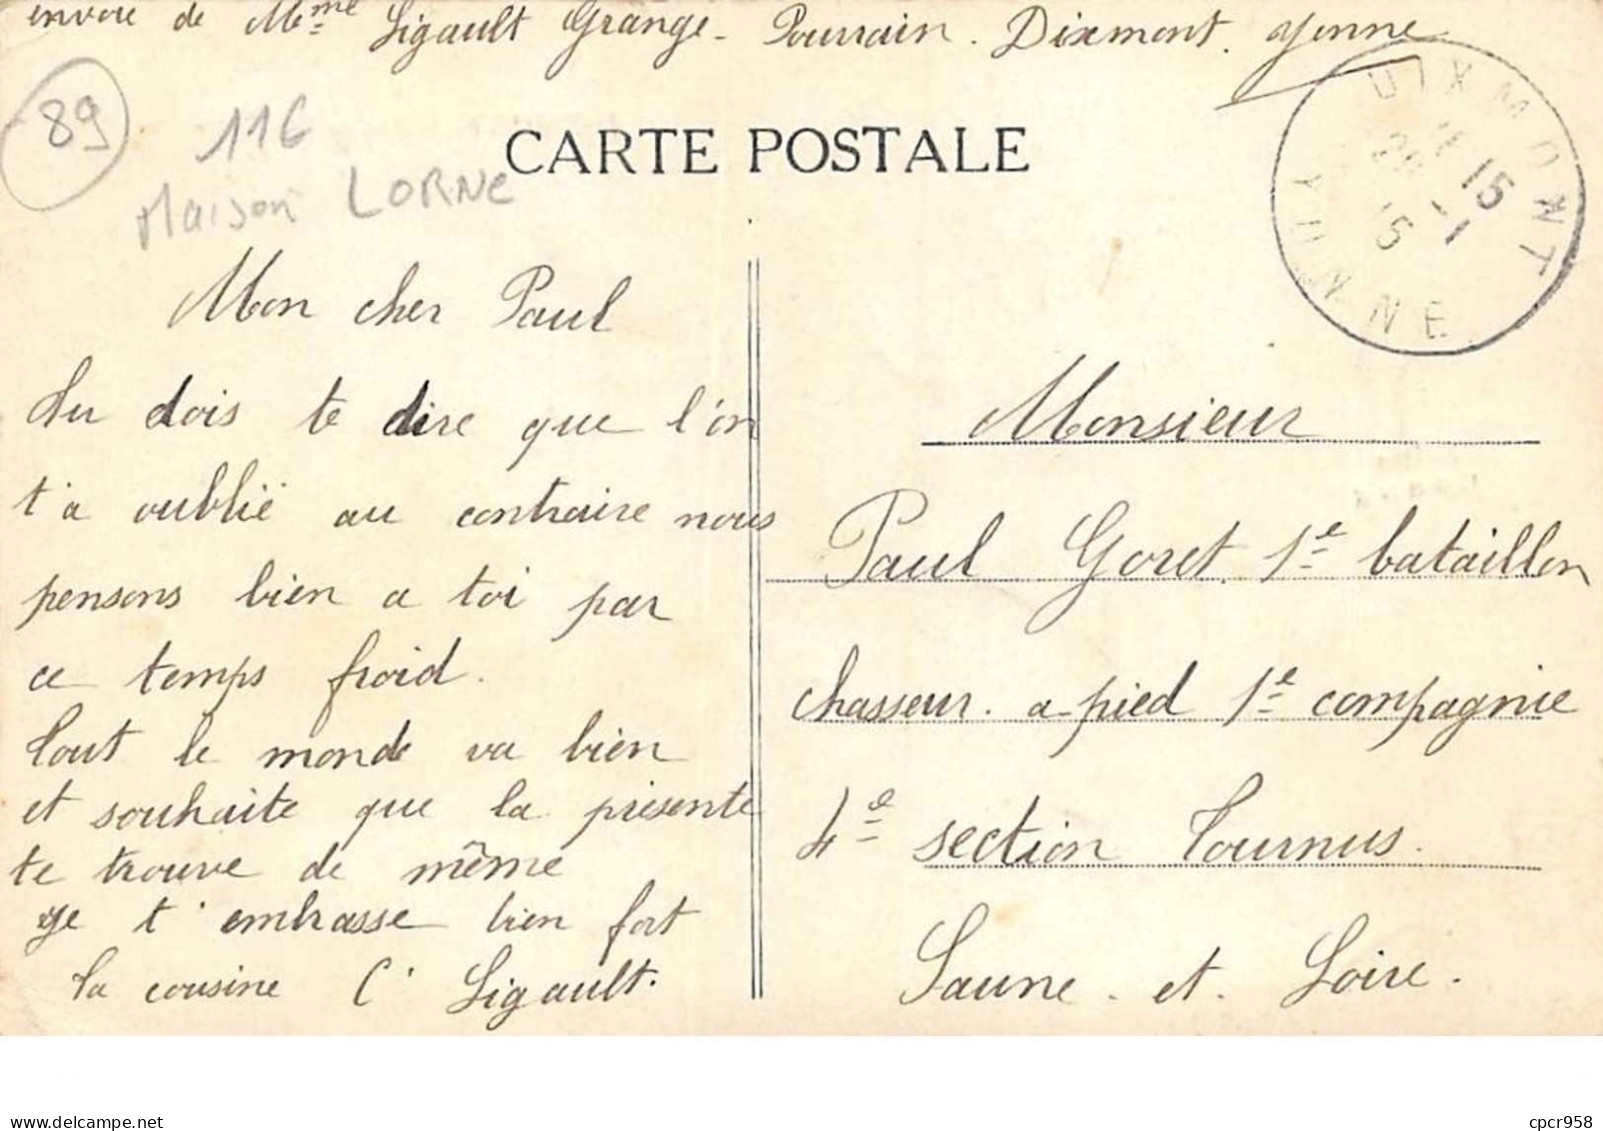 envoie de Mme Ligault Grange-Pourrain. Dixmont. Yonne
89
116
Maison LORNE
CARTE POSTALE
DIXMONT
11 15
-1
15
YONNE
Mon cher Paul
Tu dois te dire que l'on
t'a oublié au contraire nous
pensons bien a toi par
ce temps froid.
Tout le monde va bien
et souhaite que la présente
te trouve de même
Je t'embrasse bien fort
Ta cousine C' Ligault.
Monsieur
Paul Goret 1e bataillon
chasseur. a-pied 1e compagnie
4e section Tournus.
Saune. et. Loire.
delcampe.net
cpcr958